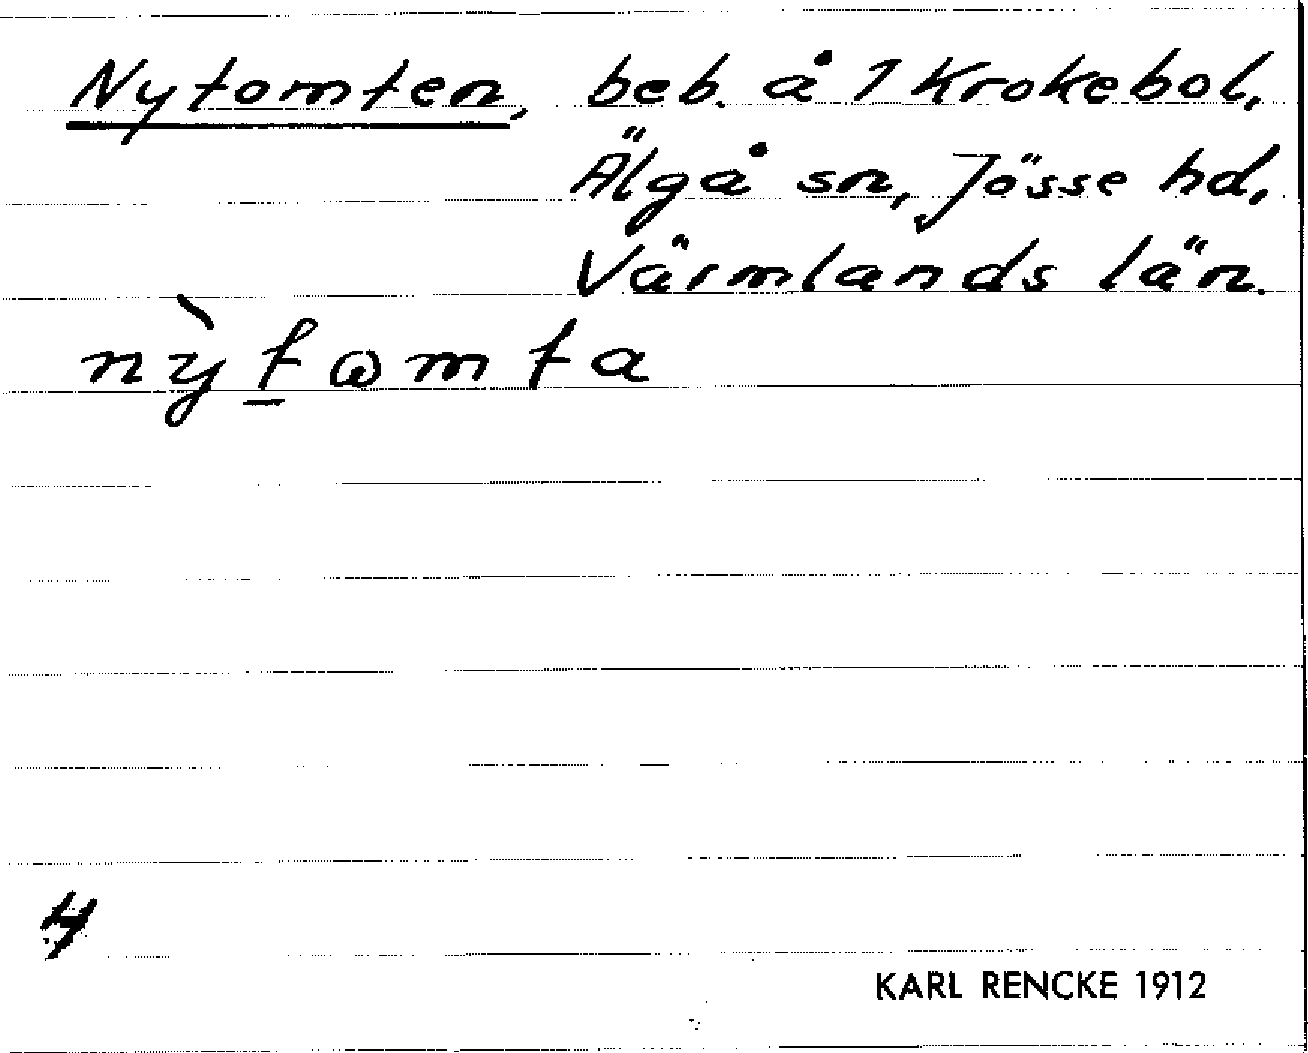 Nytomten, beb. å 1 Krokebol,
Älgå sn, Jösse hd,
Värmlands län.
nỳt̲ꞷmta
4
KARL RENCKE 1912